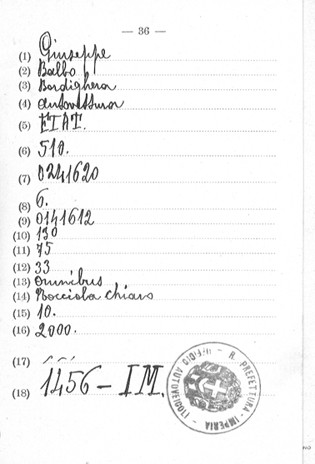 — 36 —
(1) Giuseppe
(2) Balbo
(3) Bordighera
(4) Autovettura
(5) FIAT.
(6) 510.
(7) 0241620
(8) 6.
(9) 0141612
(10) 130
(11) 75
(12) 33
(13) Omnibus
(14) Nocciola chiaro
(15) 10.
(16) 2000.
(17)
(18) 1456 – IM.
R. PREFETTURA - IMPERIA - UFFICIO AUTOVEICOLI